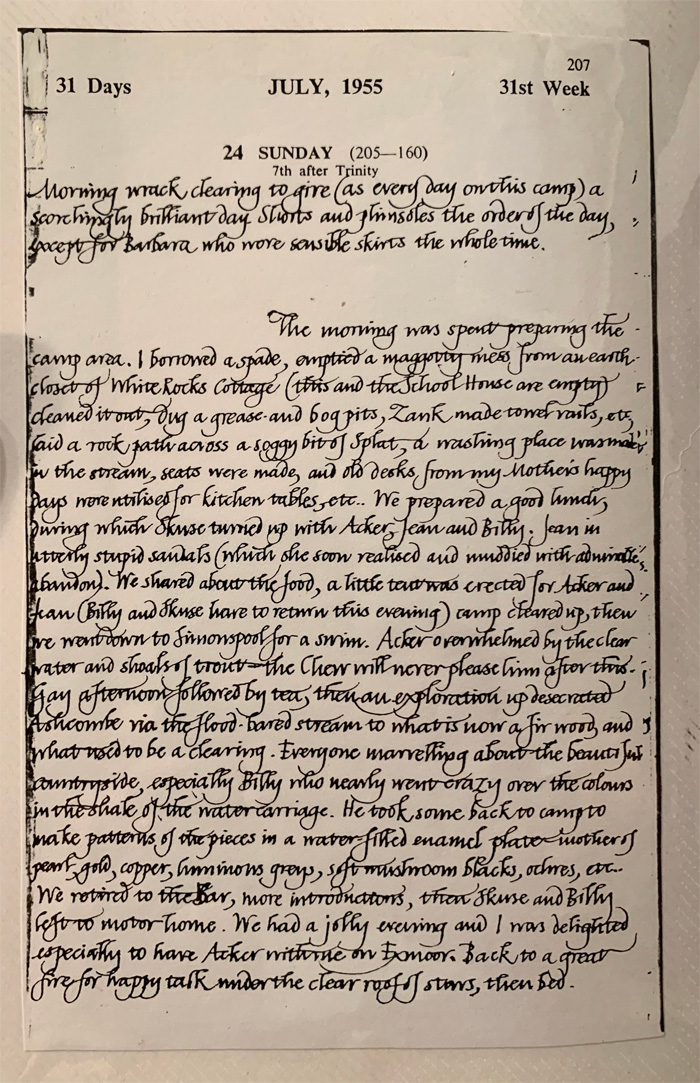 207
31 Days JULY, 1955 31st Week
24 SUNDAY (205—160)
7th after Trinity
Morning wrack clearing to give (as every day on this camp) a
scorchingly brilliant day. Shorts and plimsoles the order of the day,
except for Barbara who wore sensible skirts the whole time.
The morning was spent preparing the
camp area. I borrowed a spade, emptied a maggotty mess from an earth-
closet of White Rocks Cottage (this and the School House are empty)
cleaned it out, Dug a grease-and bog pits, Zank made towel rails, etc,
laid a rock path across a soggy bit of Splat, a washing place was made
in the stream, seats were made, and old desks from my Mother's happy
days were utilised for kitchen tables, etc.. We prepared a good lunch,
during which Skuse turned up with Acker, Jean and Billy. Jean in
utterly stupid sandals (which she soon realised and muddied with admirable
abandon). We shared about the food, a little tent was erected for Acker and
Jean (Billy and Skuse have to return this evening) camp cleared up, then
we went down to Simonspool for a swim. Acker overwhelmed by the clear
water and shoals of trout - the Chew will never please him after this.
Gay afternoon followed by tea, then an exploration up desecrated
Ashcombe via the flood-bared stream to what is now a fir wood, and
what used to be a clearing. Everyone marvelling about the beautiful
countryside, especially Billy who nearly went crazy over the colours
in the shale of the water carriage. He took some back to camp to
make patterns of the pieces in a water-filled enamel plate - mother of
pearl, gold, copper, luminous greys, soft mushroom blacks, ochres, etc..
We retired to the Bar, more introductions, then Skuse and Billy
left to motor home. We had a jolly evening and I was delighted
especially to have Acker with me on Exmoor. Back to a great
fire for happy talk under the clear roof of stars, then bed.